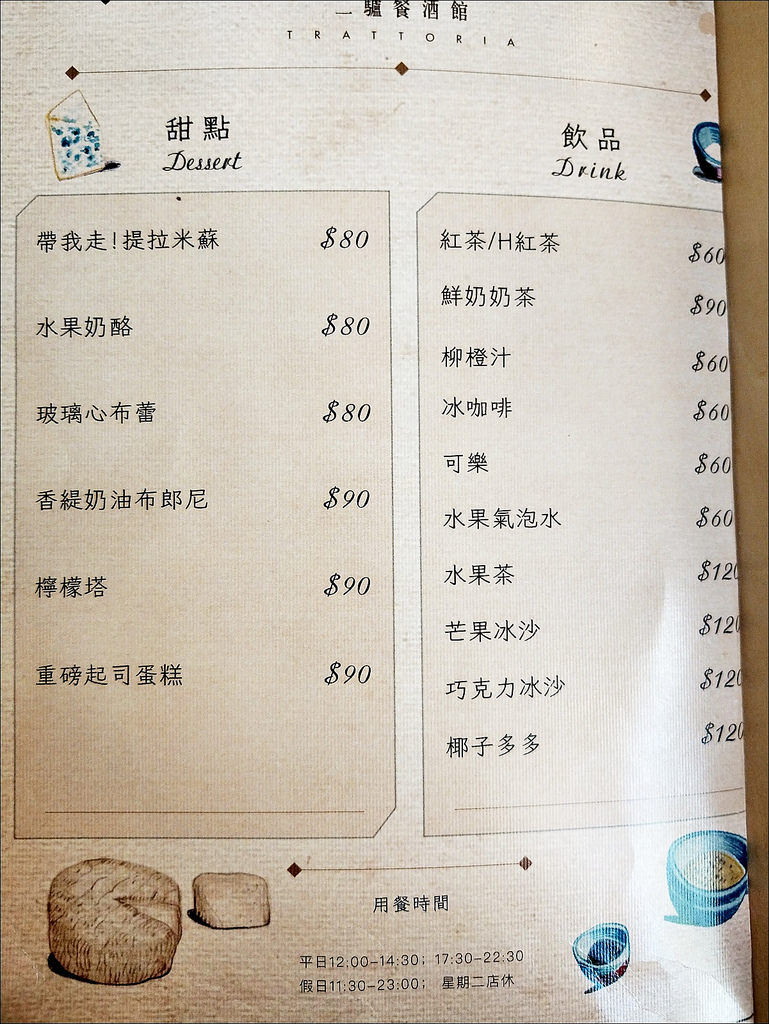 二驢餐酒館
TRATTORIA
甜點
Dessert
帶我走!提拉米蘇 $80
水果奶酪 $80
玻璃心布蕾 $80
香緹奶油布郎尼 $90
檸檬塔 $90
重磅起司蛋糕 $90
飲品
Drink
紅茶/H紅茶 $60
鮮奶奶茶 $90
柳橙汁 $60
冰咖啡 $60
可樂 $60
水果氣泡水 $60
水果茶 $120
芒果冰沙 $120
巧克力冰沙 $120
椰子多多 $120
用餐時間
平日12:00-14:30; 17:30-22:30
假日11:30-23:00; 星期二店休